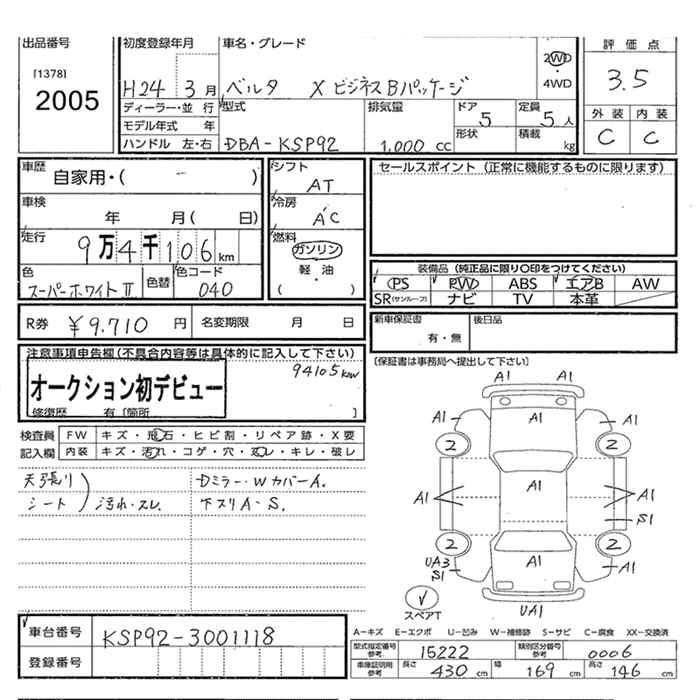 出品番号
[1378]
2005
初度登録年月
H24 3月
車名・グレード
ベルタ X ビジネスBパッケージ
2WD
・
4WD
評価点
3.5
外装 内装
C C
ディーラー・並行
モデル年式 年
ハンドル 左・右
型式
DBA-KSP92
排気量
1,000 cc
ドア
5
形状
定員
5人
積載
kg
車歴
自家用・( )
車検
年 月( 日)
走行
9万4千106km
色
スーパーホワイトⅡ
色替
色コード
040
シフト
AT
冷房
AC
燃料
ガソリン
軽・油
( )
セールスポイント(正常に機能するものに限ります)
装備品(純正品に限り○印をつけてください)
PS PW ABS エアB AW
SR(サンルーフ) ナビ TV 本革
R券 ¥9.710 円 名変期限 月 日
新車保証書
有・無
後日品
〔保証書は事務局へ提出して下さい〕
注意事項申告欄(不具合内容等は具体的に記入して下さい)
94105km
オークション初デビュー
修復歴 有〔箇所 〕
検査員
記入欄
FW キズ・飛石・ヒビ割・リペア跡・X要
内装 キズ・汚れ・コゲ・穴・スレ・キレ・破レ
天張り
シート
汚れ・スレ
Dミラー・WカバーA.
下スリA-S.
A1 A1
A1 A1 A1
2 2
A1 A1 A1
S1
2 2
UA3
S1
A1 A1
スペアT
UA1
車台番号 KSP92-3001118
登録番号
A-キズ E-エクボ U-凹み W-補修跡 S-サビ C-腐食 XX-交換済
型式指定番号
参考
15222
類別区分番号
参考
0006
車庫証明用
参考
長さ 430 cm 幅 169 cm 高さ 146 cm